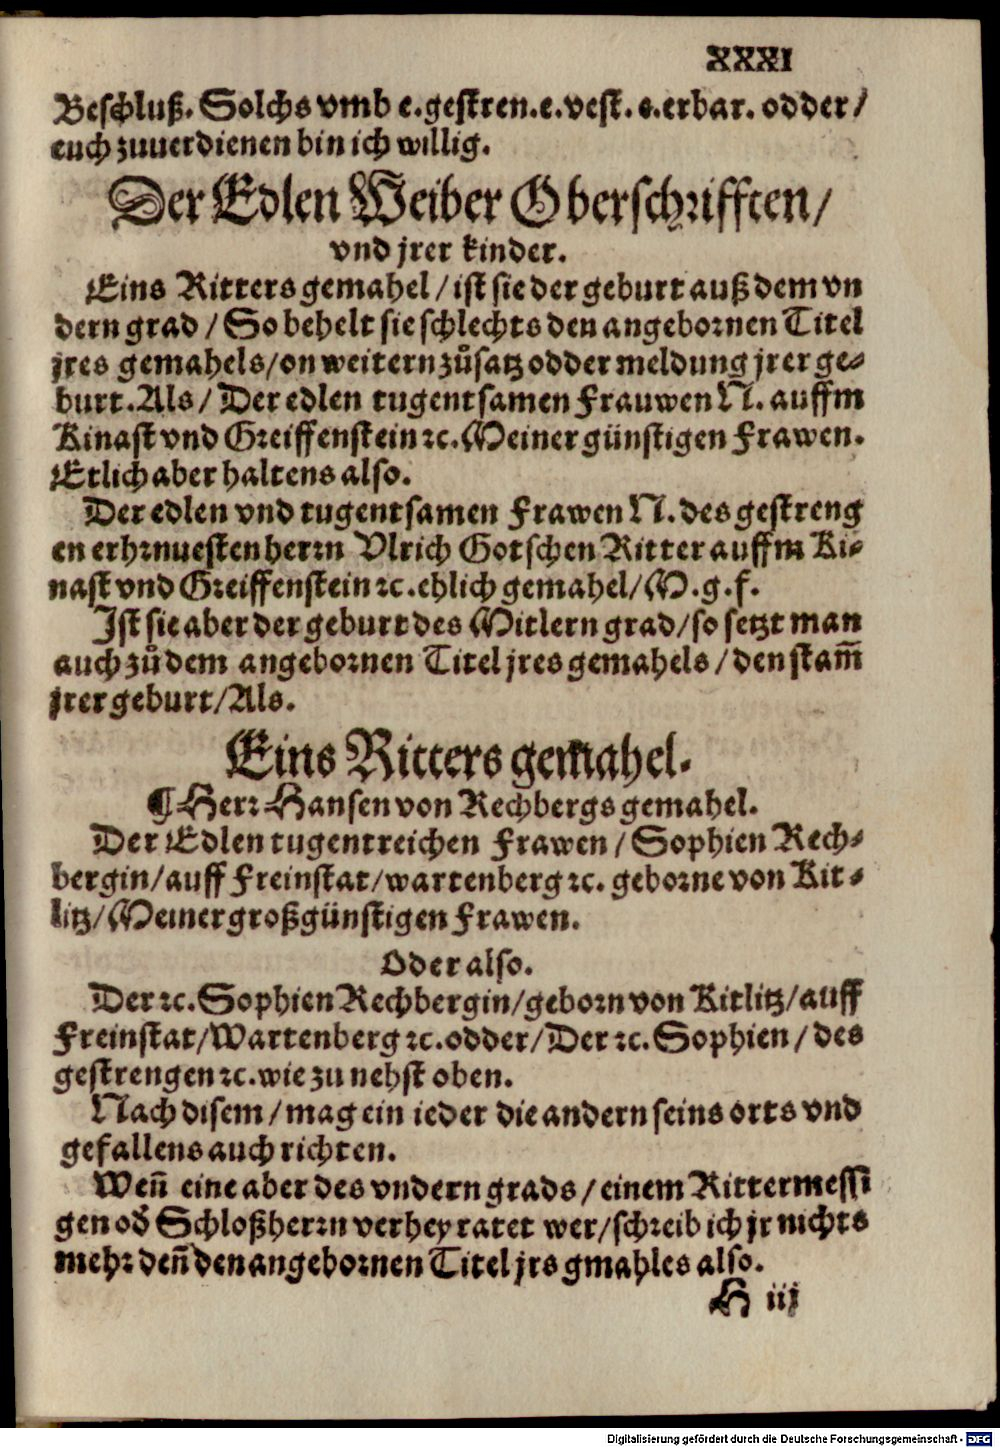 XXXI
Beschluß. Solchs vmb e.gestren.e.vest. e.erbar. odder/
euch zuuerdienen bin ich willig.
Der Edlen Weiber Oberschrifften/
vnd jrer kinder.
Eins Ritters gemahel/ist sie der geburt auß dem vn
dern grad/So behelt sie schlechts den angebornen Titel
jres gemahels/on weitern zůsatz odder meldung jrer ge⸗
burt.Als/Der edlen tugentsamen Frauwen N. auffm
Kinast vnd Greiffenstein ꝛc.Meiner günstigen Frawen.
Etlich aber haltens also.
Der edlen vnd tugentsamen Frawen N.des gestreng
en erhrnuesten herrn Vlrich Gotschen Ritter auffm Ki⸗
nast vnd Greiffenstein ꝛc.ehlich gemahel/M.g.f.
Ist sie aber der geburt des Mitlern grad/so setzt man
auch zů dem angebornen Titel jres gemahels/den stam̄
jrer geburt/Als.
Eins Ritters gemahel.
¶ Herr Hansen von Rechbergs gemahel.
Der Edlen tugentreichen Frawen/Sophien Rech⸗
bergin/auff Freinstat/wartenberg ꝛc. geborne von Kit⸗
litz/Meiner großgünstigen Frawen.
Oder also.
Der ꝛc.Sophien Rechbergin/geborn von Kitlitz/auff
Freinstat/Wartenberg ꝛc.odder/Der ꝛc.Sophien/des
gestrengen ꝛc.wie zu nehst oben.
Nach disem/mag ein ieder die andern seins orts vnd
gefallens auch richten.
Wen̄ eine aber des vndern grads/einem Rittermessi
gen od̕ Schloßherrn verheyratet wer/schreib ich jr nichts
mehr den̄ den angebornen Titel jrs gmahles also.
H iij
Digitalisierung gefördert durch die Deutsche Forschungsgemeinschaft - DFG